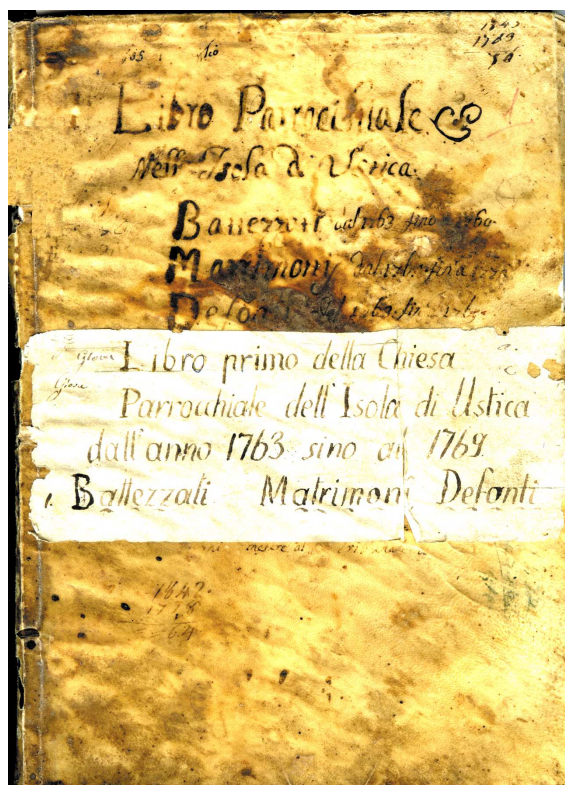 1843
1789
54
Libro Parrochiale
Nell Isola d' Ustica
Battezzati dal 1763 fino
Matrimonj dal
Defonti dal 1763 fin
Libro primo della Chiesa
Parrocchiale dell'Isola di Ustica
dall'anno 1763 sino al 1769
Battezzati Matrimoni Defonti
1842
1778
64